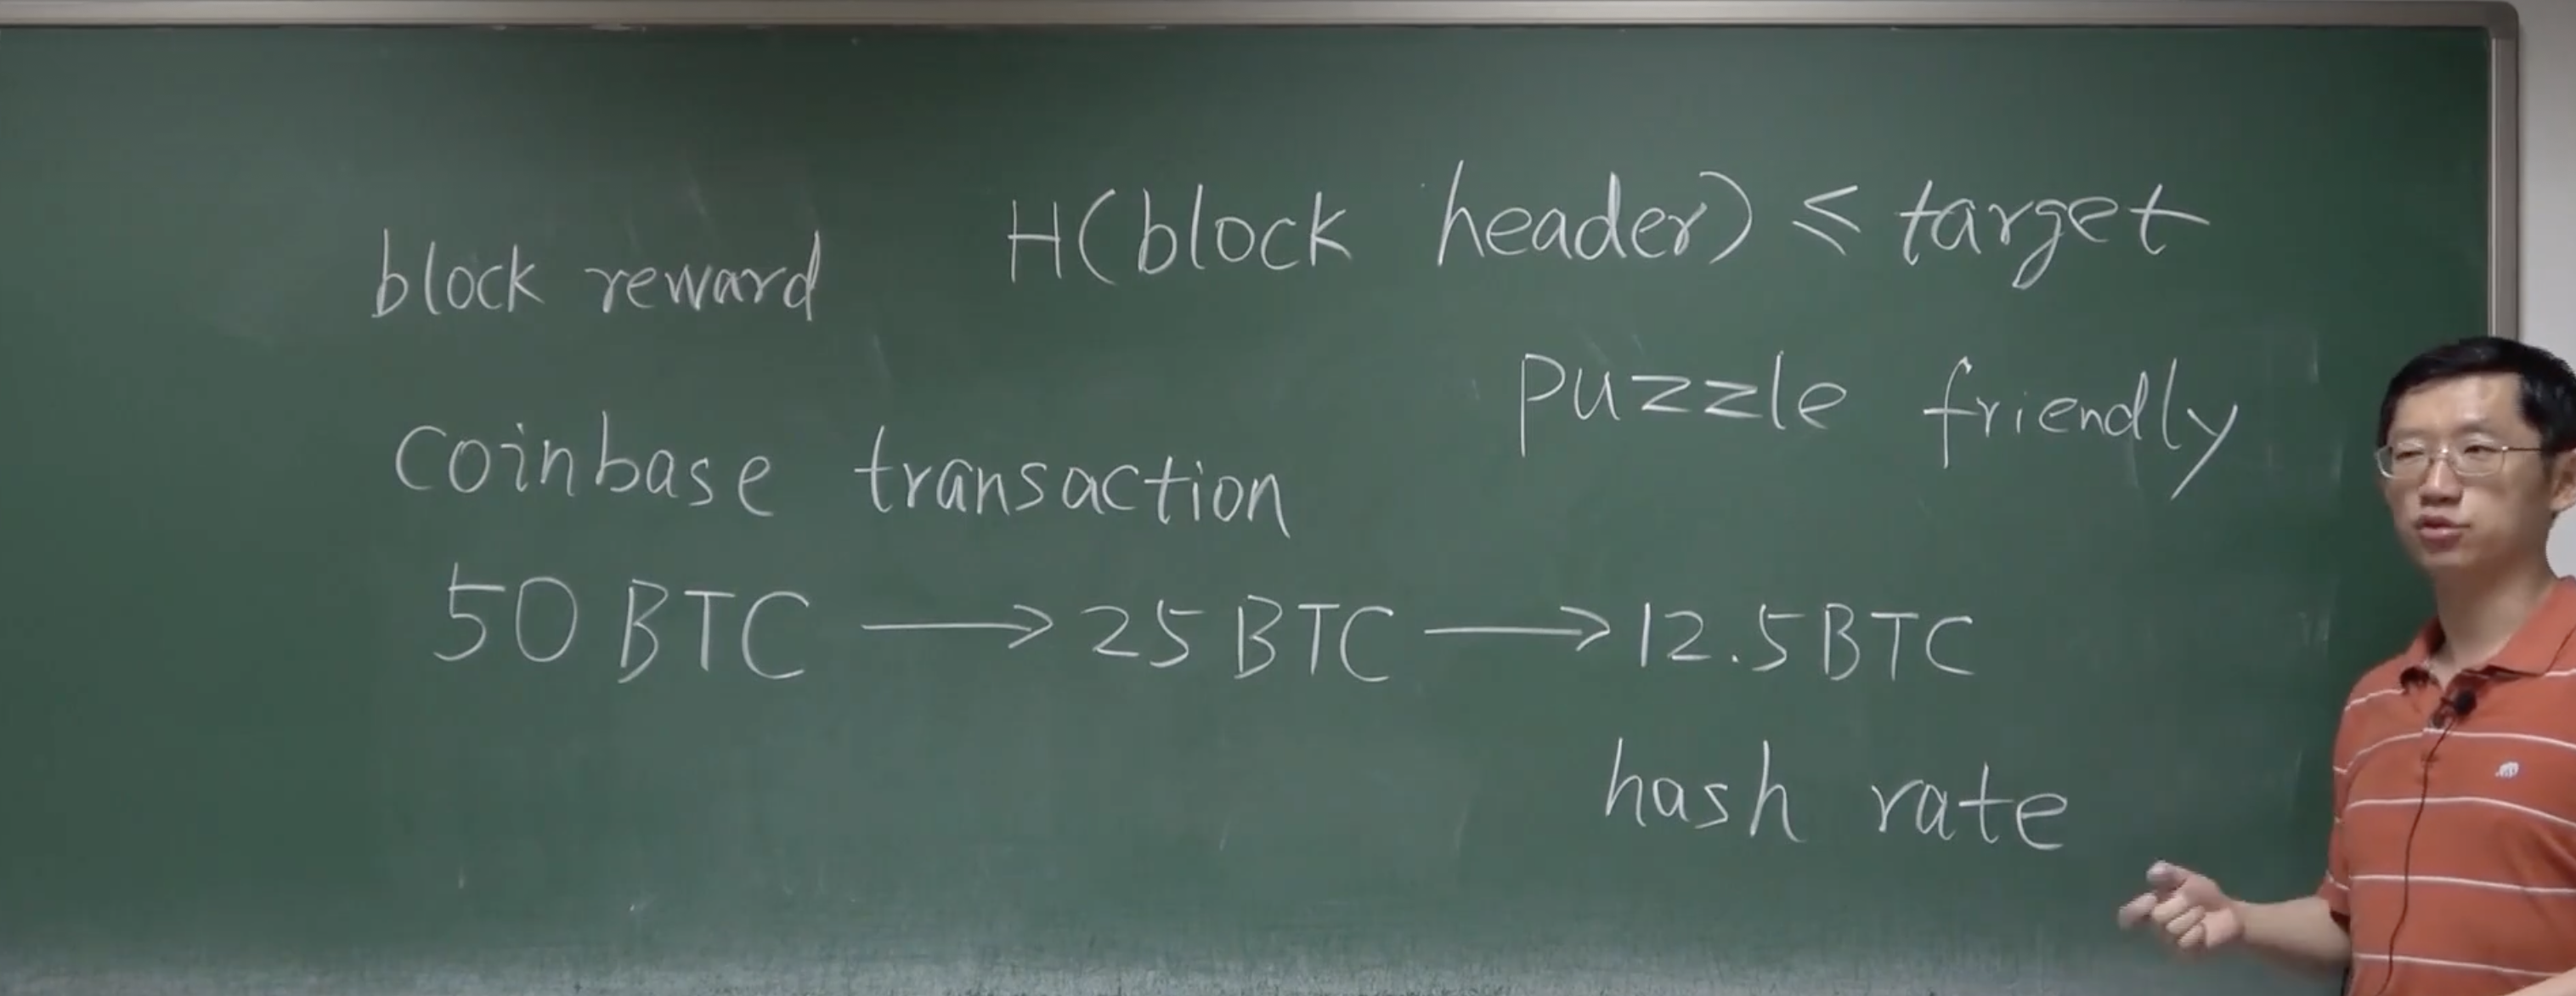 block reward
H(block header) ≤ target
puzzle friendly
coinbase transaction
50 BTC ⟶ 25 BTC ⟶ 12.5 BTC
hash rate